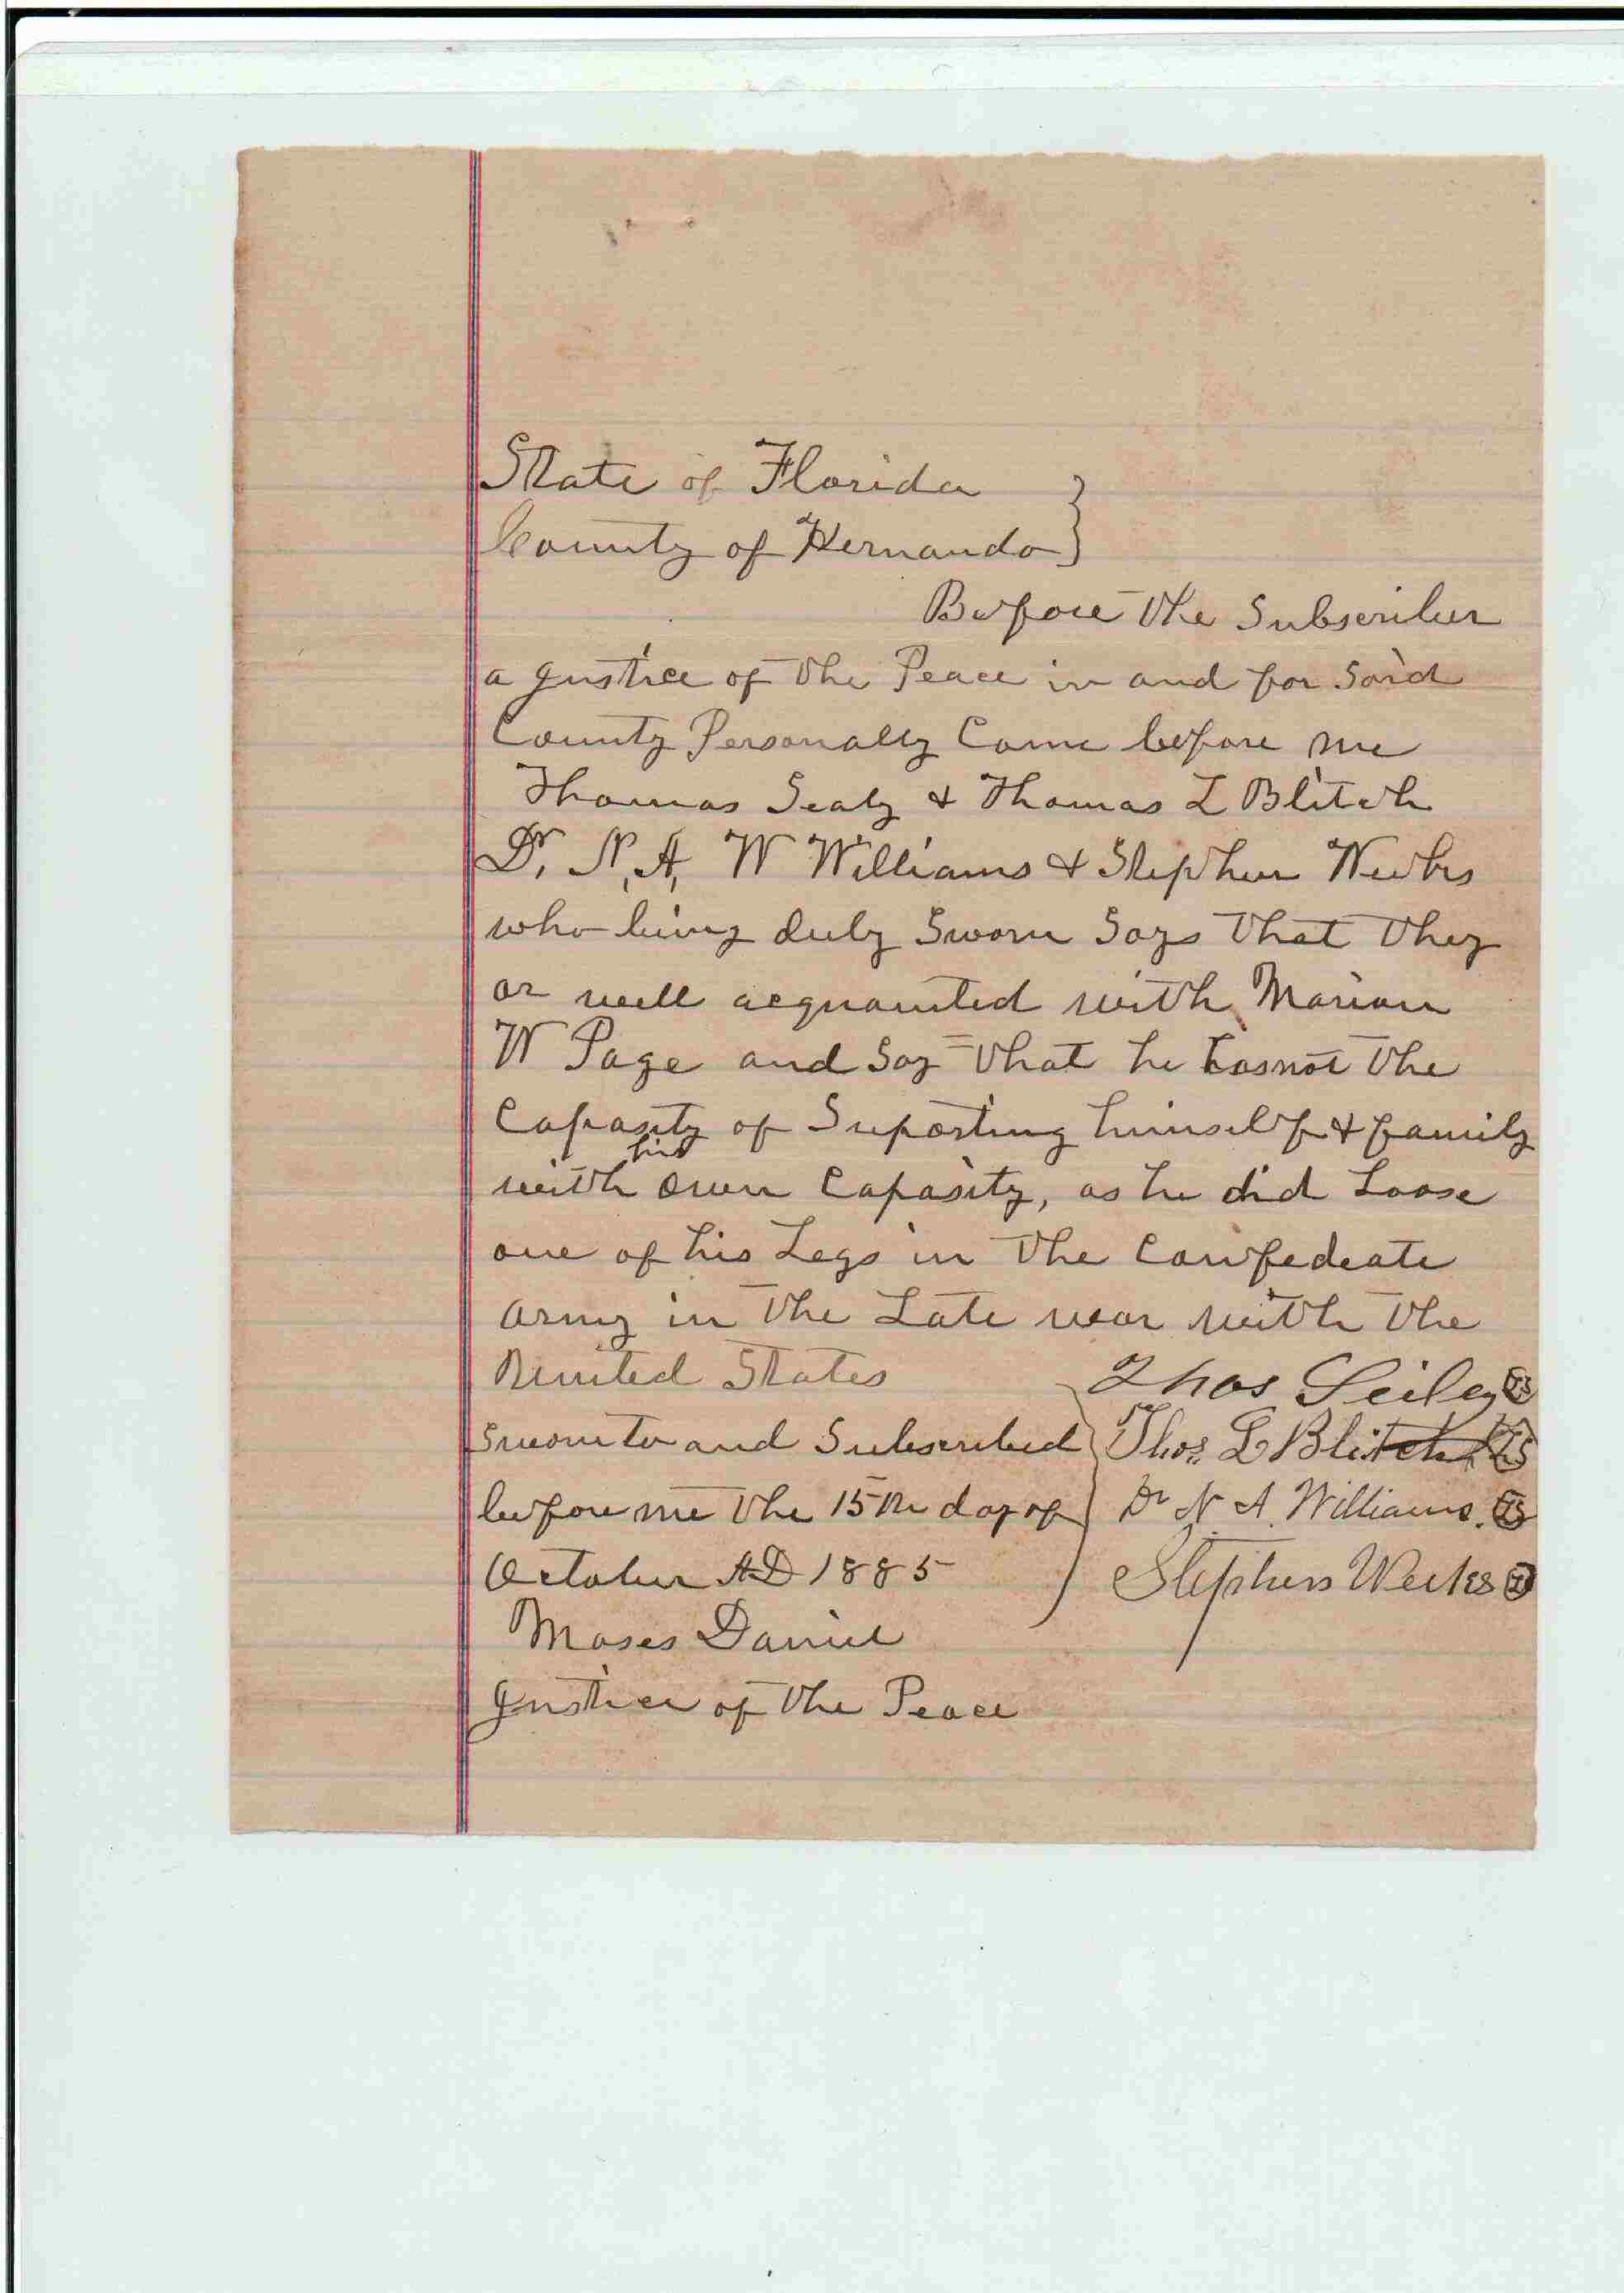 State of Florida }
County of Hernando }
Before the Subscriber
a Justice of the Peace in and for Said
County Personally Came before me
Thomas Sealy & Thomas L Blitch
Dr. N. A. W Williams & Stephen
who being duly Sworn Says that they
ar well acquainted with Marion
W Page and Say = that he has not the
Capasity of Suporting himself & family
with his own Capasity, as he did Loose
one of his Legs in the Confedeate
Army in the Late war with the
United States
Thos Seiley LS
Sworn to and Subscribed
Thos. L Blitch LS
before me the 15th day of
Dr N. A. Williams. LS
October AD 1885
Stephens Weekes LS
Moses Daniel
Justice of the Peace